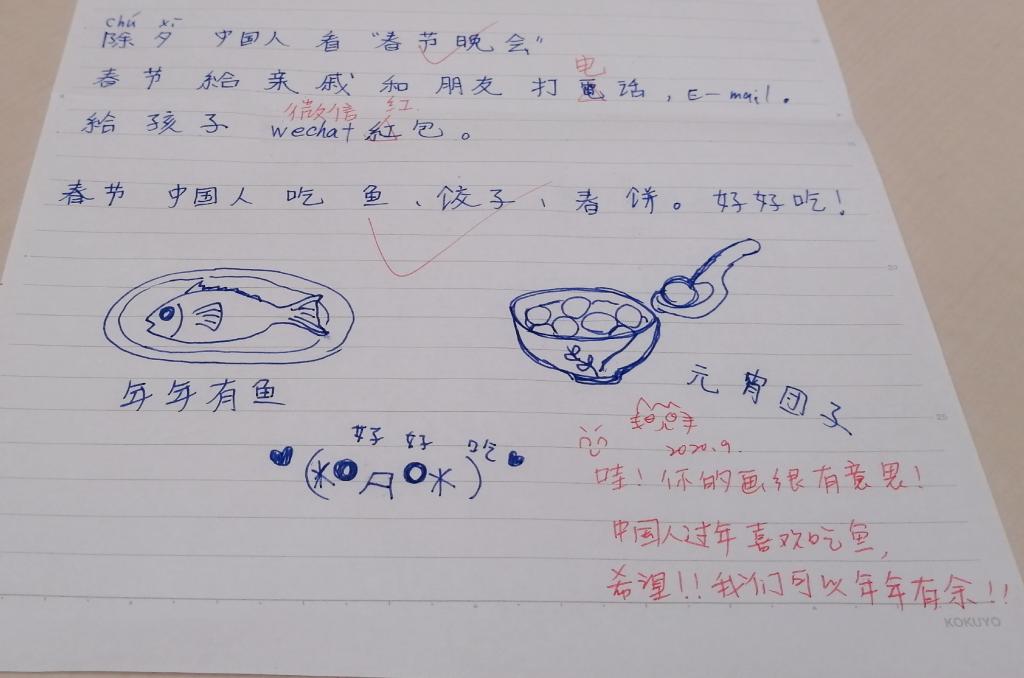 chú xī
除夕 中国人 看 "春节晚会"
电
春节 給 亲戚 和 朋友 打 電话, E-mail。
微信 红
給 孩子 wechat 紅包。
春节 中国人 吃 鱼、饺子、春饼。好好吃!
年年有鱼
元宵团子
好 好 吃
2020.9.
哇! 你的画很有意思!
中国人过年喜欢吃鱼,
希望!! 我们可以年年有余!!
KOKUYO